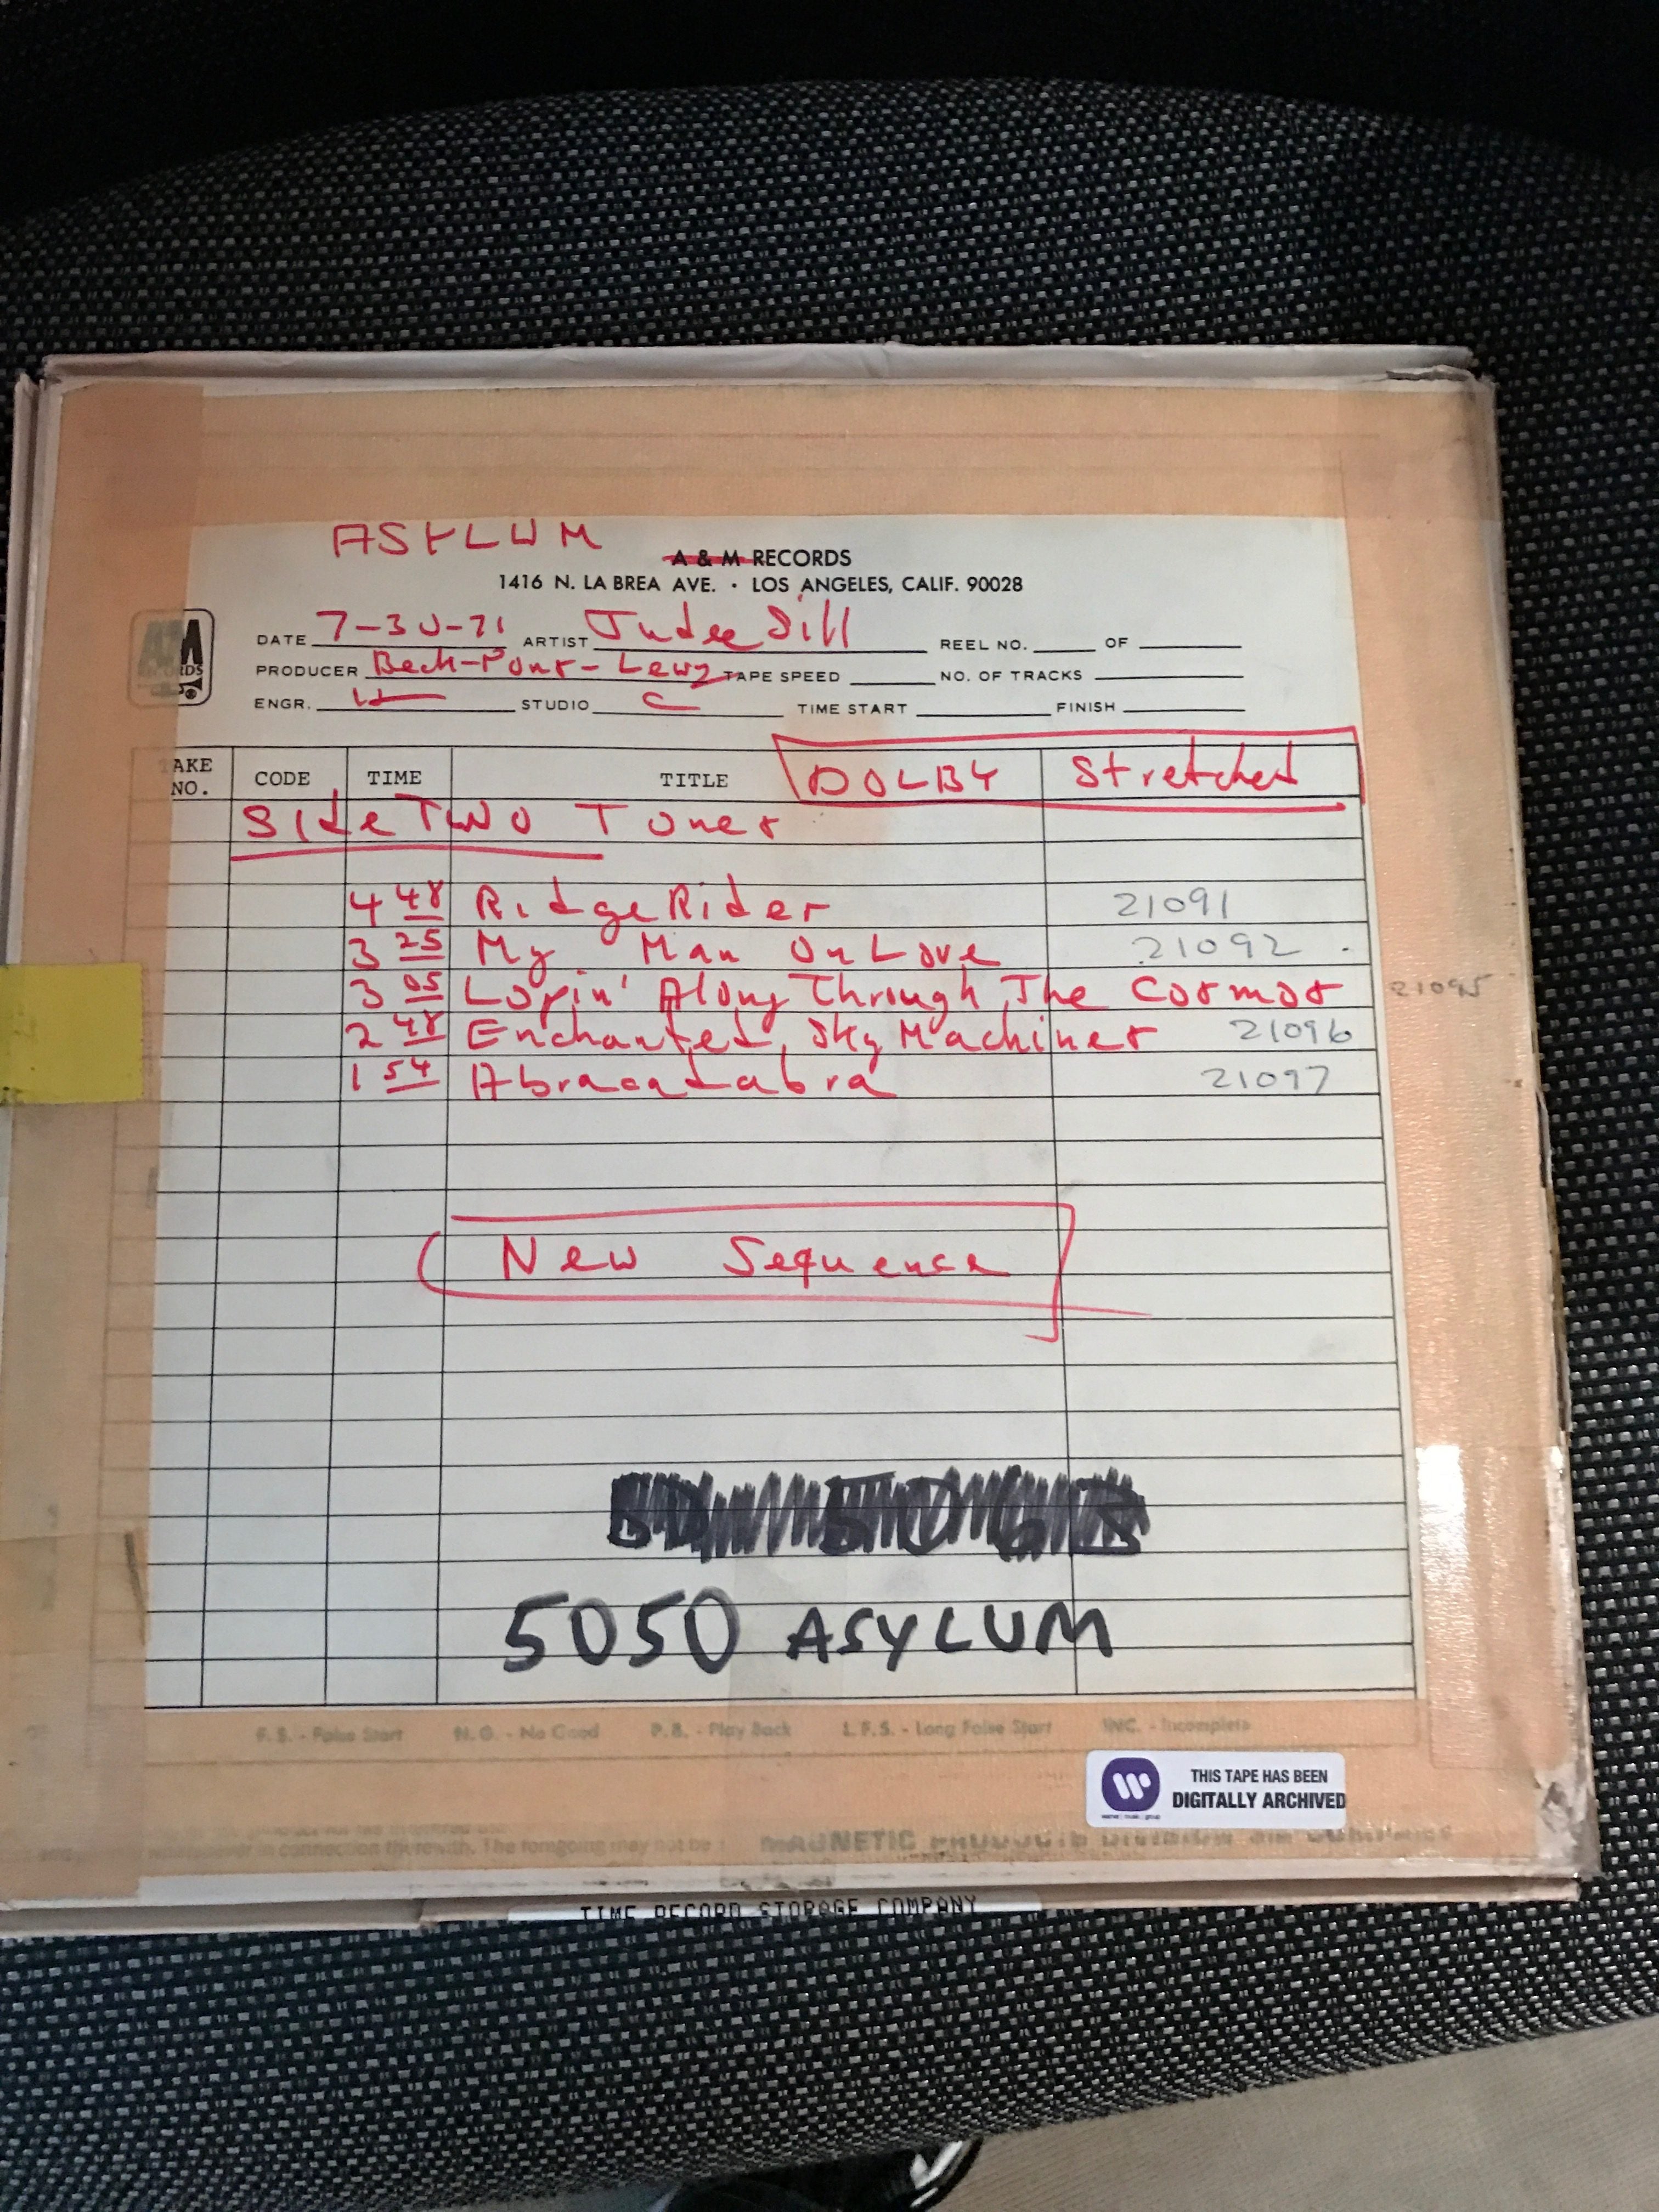 ASYLUM
A & M RECORDS
1416 N. LA BREA AVE. • LOS ANGELES, CALIF. 90028
DATE 7-30-71 ARTIST Judee Sill REEL NO. OF
PRODUCER Beck-Pons-Lewy TAPE SPEED NO. OF TRACKS
ENGR. STUDIO C TIME START FINISH
AKE NO. CODE TIME TITLE DOLBY Stretched
Side TWO Tones
4 48 Ridge Rider 21091
3 25 My Man On Love 21092
3 05 Lopin' Along Through The Cosmos 21095
2 48 Enchanted Sky Machines 21096
1 54 Abracadabra 21097
New Sequence
5050 ASYLUM
F.S. - False Start N.G. - No Good P.B. - Play Back L.F.S. - Long False Start INC. - Incomplete
THIS TAPE HAS BEEN
DIGITALLY ARCHIVED
in connection therewith. The foregoing may not be MAGNETIC PRODUCTS DIVISION
TIME RECORD STORAGE COMPANY